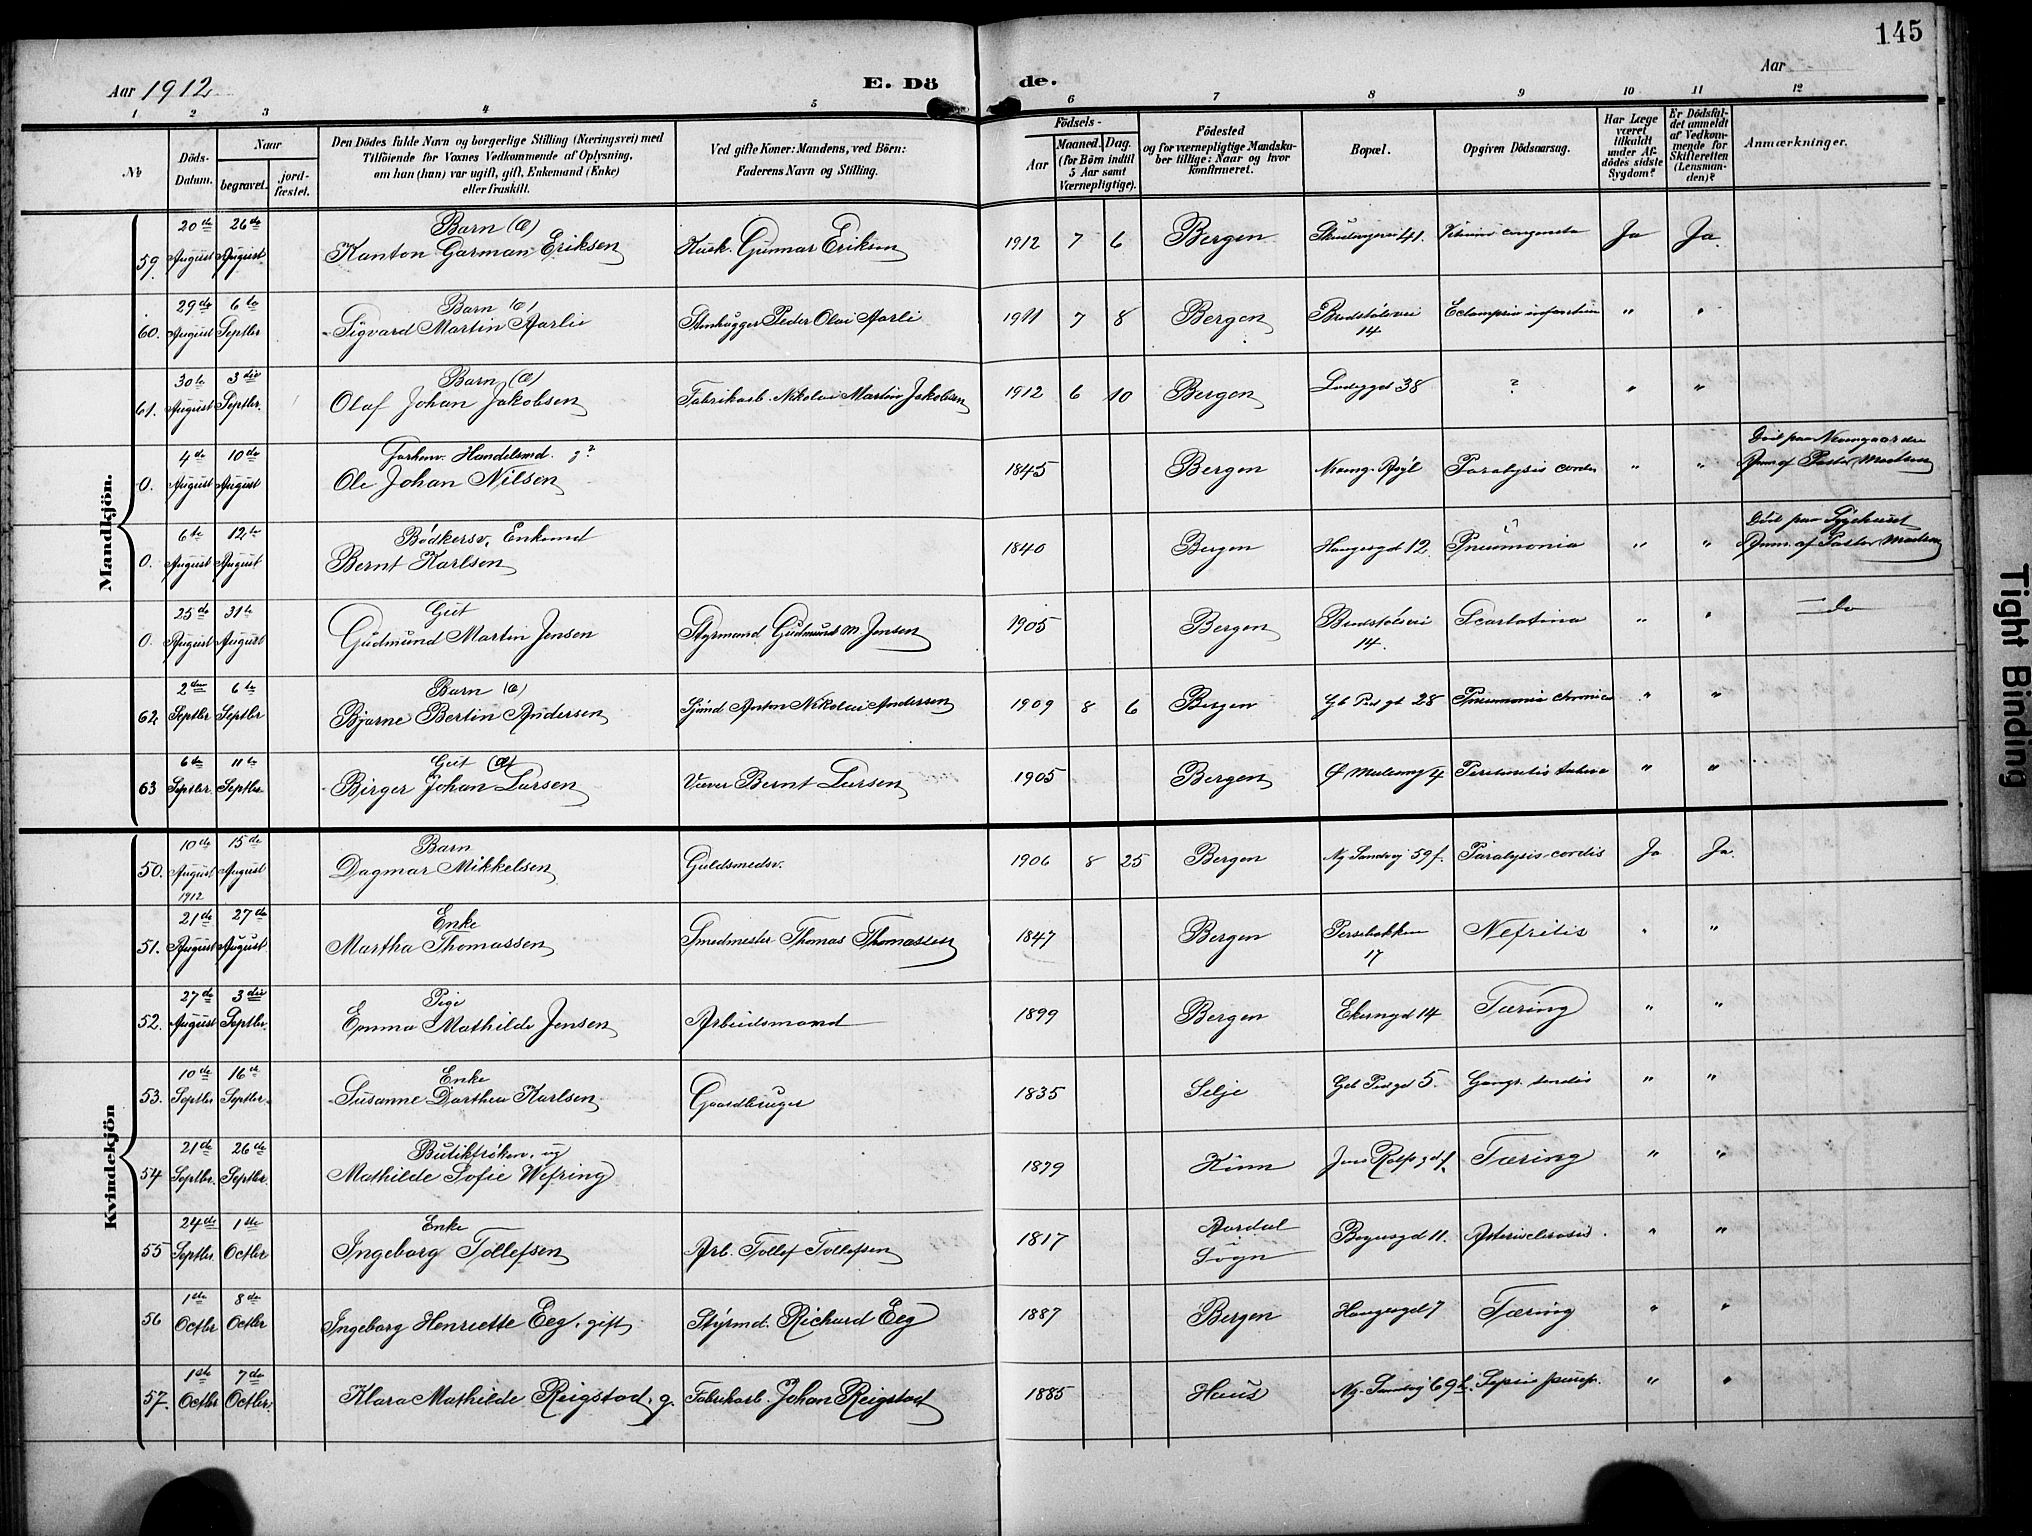 145
Aar 1912
E. Dö
de.
Aar
1 2 3 4 5 6 7 8 9 10 11 12
№
Döds-
Datum.
Naar
begravet.
jord-
fæstet.
Den Dödes fulde Navn og borgerlige Stilling (Næringsvei) med
Tilföiende for Voxnes Vedkommende af Oplysning,
om han (hun) var ugift, gift, Enkemand (Enke)
eller fraskilt.
Ved gifte Koner: Mandens, ved Börn:
Faderens Navn og Stilling.
Födsels-
Aar
Maaned. Dag.
(for Börn indtil
5 Aar samt
Værnepligtige).
Födested
og for værnepligtige Mandska-
ber tillige: Naar og hvor
konfirmeret.
Bopæl.
Opgiven Dödsaarsag.
Har Læge
været
tilkaldt
under Af-
dödes sidste
Sygdom?
Er Dödsfal-
det anmeldt
af Vedkom-
mende for
Skifteretten
(Lensman-
den)?
Anmærkninger.
Mandkjön.
20de 26de Barn (Æ)
59. August August Kanton Garman Eriksen Kusk. Gunnar Eriksen 1912 7 6 Bergen 41. Vitium congenita Ja Ja.
29de 6te Barn (Æ)
60. August Septbr Sigvard Martin Aarlie Stenhugger Peder Olai Aarli 1911 7 8 Bergen 14 Eclampsia infantum " "
30te 3die Barn (Æ)
61. August Septbr. Olaf Johan Jakobsen Fabrikarb. Nikolai Martin Jakobsen 1912 6 10 Bergen 38 ? " "
4de 10de Forhenv. Handelsmd. g? Död paa Neengaarden
0. August August Ole Johan Nilsen 1845 Bergen Paralysis cordis " " Anm. af Pastor Madsen
6te 12te Bödkersv. Enkemd Död paa Sygehuset
0. August August Bernt Karlsen 1840 Bergen Haugesgd 12. Pneumonia " " Anm. af Pastor Madsen
25de 31te Gut
0. August August Gudmund Martin Jensen Styrmand Gudmund M. Jensen 1905 Bergen 14. Scarlatina " " — do
2den 6te Barn (Æ)
62. Septbr Septbr Bjarne Bertin Andersen Sjömd Anton Nikolai Andersen 1909 8 6 Bergen 28 Pneumonia chronica " "
6te 11te Gut (Æ)
63 Septbr. Septbr. Birger Johan Larsen Væver Bernt Larsen 1905 Bergen 4 " "
Kvindekjön
10de 15de Barn
50. August August Dagmar Mikkelsen Guldsmedsv. 1906 8 25 Bergen Ny Sandvig 59f. Paralysis cordis Ja Ja.
1912
21de 27de Enke
51. August August Martha Thomassen Smedmester Thomas Thomassen 1847 Bergen Persebakken 17 Nefritis " "
27de 3die Pige
52. August Septbr. Emma Mathilde Jensen Arbeidsmand 1899 Bergen Ekrengd 14 Tæring " "
10de 16de Enke
53. Septbr Septbr. Susanne Dorthea Karlsen Gaardbruger 1835 Selje 5. Gangr. senilis " "
21de 26de Butikfröken, ug
54 Septbr. Septbr. Mathilde Sofie Wefring 1879 Kinn Jens Rolfsgd Tæring " "
24de 1ste Enke Aardal
55 Septbr. Octbr Ingeborg Tollefsen Arb. Tollef Tollefsen 1817 Sogn 11. Arteriosclerosis. " "
1ste 8de
56 Octbr Octbr Ingeborg Henriette Eeg, gift Styrmd. Richard Eeg 1887 Bergen Haugesgd 7 Tæring " "
1ste 7de
57. Octbr Octbr. Klara Mathilde Reigstad, g. Fabrikarb. Johan Reigstad 1885 Haus Ny-Sandvig 69 Sepsis puerp. " "
Tight Binding